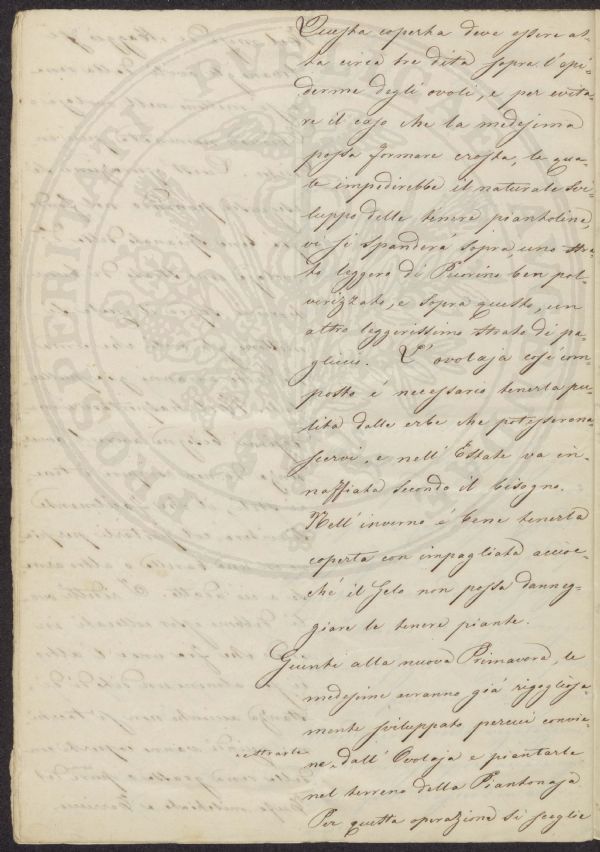 Questa coperta deve essere al-
ta circa tre dita sopra l'epi-
derme degli ovoli, e per evita-
re il caso che la medesima
possa formare crosta, la qua-
le impedirebbe il naturale svi-
luppo delle tenere piantoline,
vi si spanderà sopra, uno stra-
to leggero di Pecorino ben pol-
verizzato, e sopra questo, un
altro leggerissimo strato di pa-
gliccio. L'ovolaja così com-
posta é necessario tenerla pu-
lita dalle erbe che potessero na-
scervi, e nell'Estate va in-
naffiata secondo il bisogno.
Nell'inverno é bene tenerla
coperta con impagliata accioc-
ché il Gelo non possa danneg-
giare le tenere piante.
Giunti alla nuova Primavera, le
medesime avranno già rigogliosa-
mente sviluppato percui convie-
ne estrarle dall'Ovolaja e piantarle
nel terreno della Piantonaja
Per questa operazione si sceglie
PROSPERITATI PVBLICAE